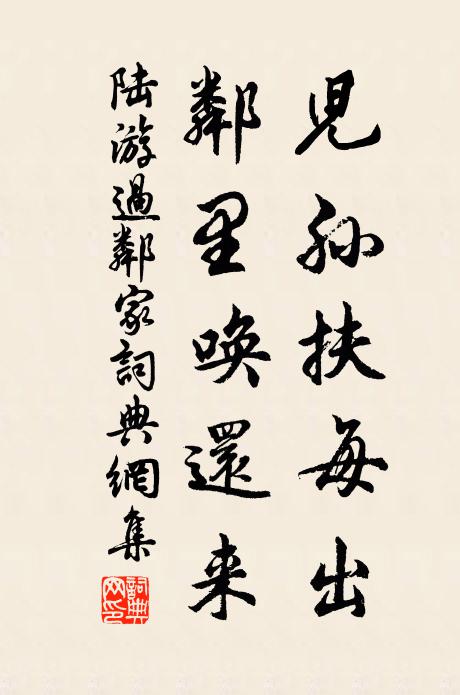 兒孫扶每出
鄰里喚還来
陸游過鄰家詞典網集
詞典網印